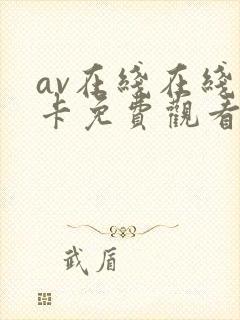 av在綫在綫
卡免費觀看
武盾